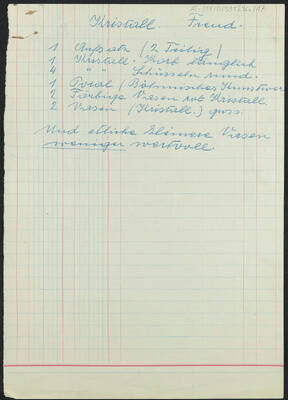 Kristall. Freud.
1 Aufsatz (2 Teilig)
1 Kristall-Korb länglich
4 " " Schüsseln rund.
1 Pokal (Böhmisches
2 Färbige Vasen rot Kristall
2 Vasen (Kristall.) gross.
Und etliche kleinere Vasen
weniger wertvoll.